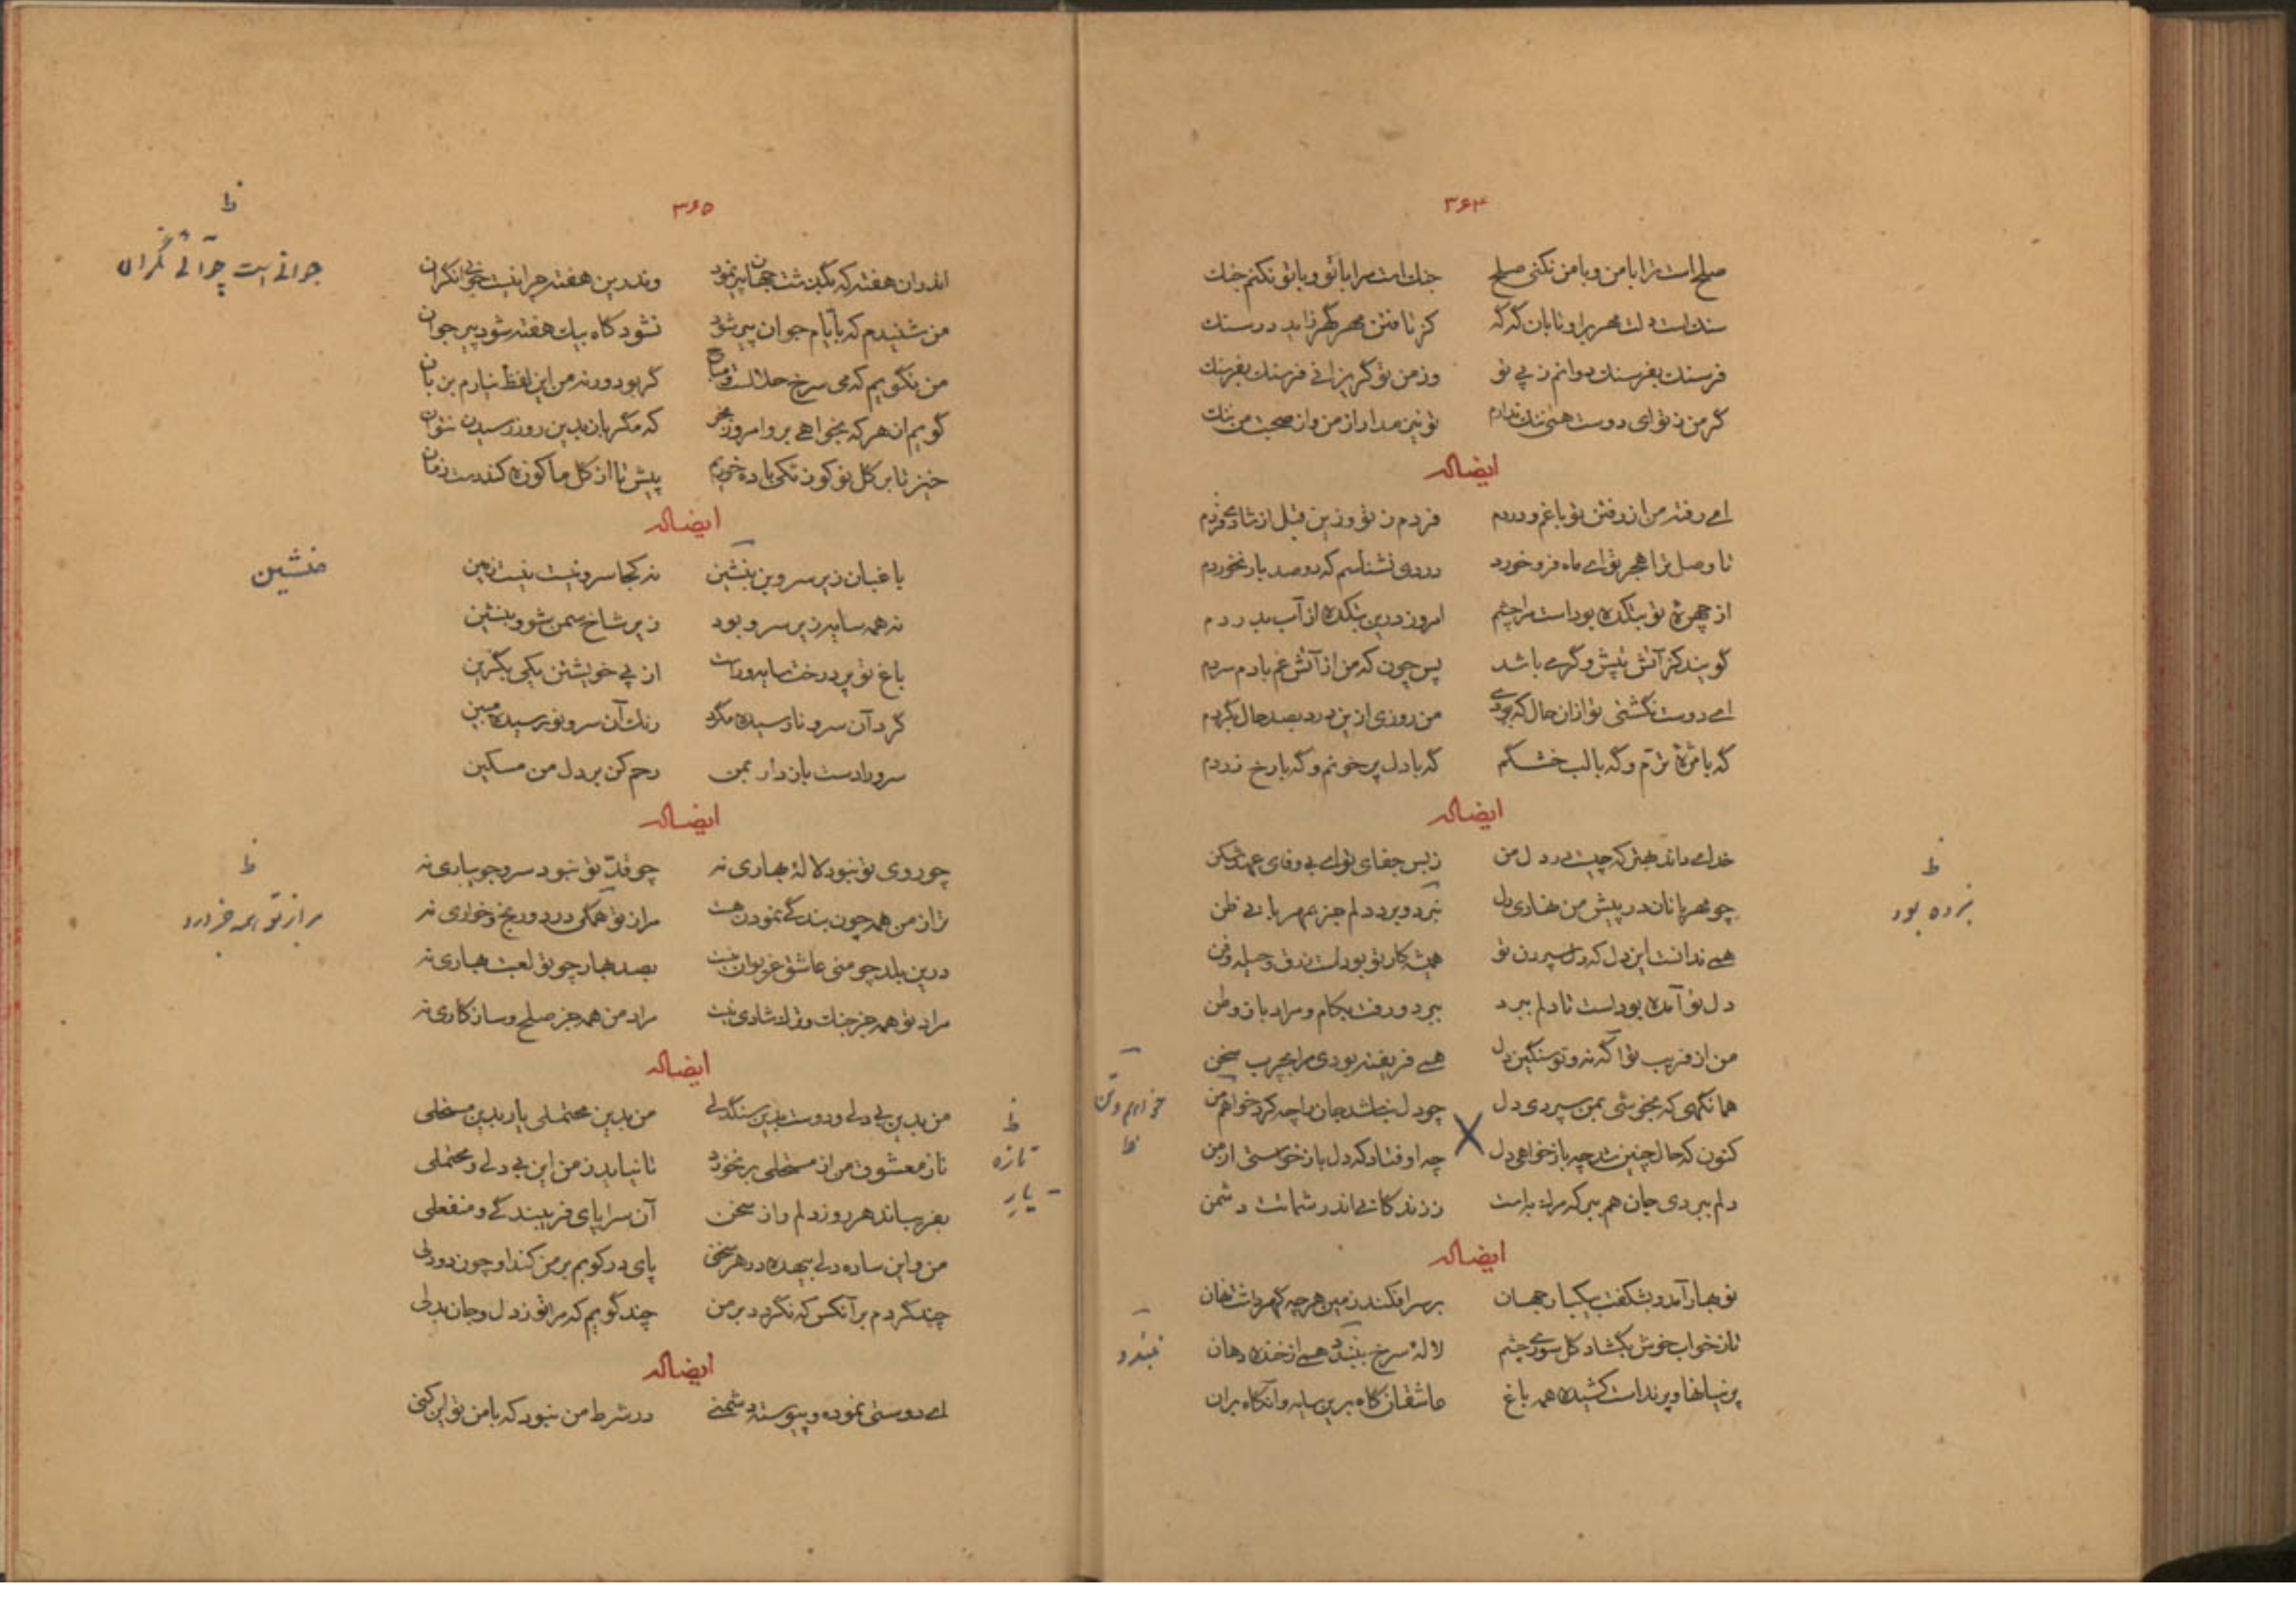 ۳۶۴
صلح است ترا با من و با من نکنی صلح جنك است مرا با تو و با تو نکنم جنك
سنك است دلت مهر براو تابان گه گه کز تافتن مهر گهر زاید در سنك
فرسنك بفرسنك دوانم ز پی تو وز من تو گریزانی فرسنك بفرسنك
گر من ز تو ای دوست همی ننك ندارم تو نیز مدار از من و از صحبت من ننك
ایضاله
ای رفته من از رفتن تو باغم و دردم فردم ز تو وزین قبل از شادی فردم
تا وصل ترا هجر تو ای ماه فرو خورد دردی نشناسم که دو صد بار نخوردم
از چهره تو بتکده بوداست مرا چشم امروز درین بتکده از آب بدردم
گویند کز آتش تپش و گرمی باشد پس چون که من از آتش غم با دم سردم
ای دوست نگشتی تو ازان حال که بودی من روزی ازین درد بصد حال بگردم
گه با مژهٔ ترّم و گه با لب خشکم گه با دل پر خونم و گه با رخ زردم
ایضاله
خدای داند بهتر که چیست در دل من ز بس جفای تو ای بی وفای عهد شکن
چو مهربانان در پیش من نهادی دل نبرد و برد دلم جز بمهربانی ظن
ظ
نبرده بود
همی ندانست این دل که دل سپردن تو همیشه کار تو بود است زرق و حیله و فن
دل تو آمده بود است تا دلم ببرد ببرد و رفت بکام و مراد باز وطن
من از فریب تو آگه نه و تو سنگین دل همی فریفته بودی مرا بچرب سخن
همانگهی که بخوشی بمن سپردی دل چو دل نباشد جان را چه کرد خواهم من
خواهم و تن
ظ
کنون که حال چنین شد چه باز خواهی دل چه اوفتاد که دل باز خواستی از من
دلم ببردی جان هم ببر که مراد براست ز زندگانی اندر شماتت دشمن
ایضاله
نو بهار آمد و بشکفت بیکبار جهان بر سر افکند زمین هرچه گهر داشت نهان
تا ز خواب خوش بگشاد گل سوری چشم لالهٔ سرخ ببندد همی از خنده دهان
نبندد
پرنیانها و پرنداست کشیده همه باغ عاشقان گاه برین سایه و آنگاه بران
۳۶۵
اندران هفته که بگذشت جهان پیر نمود وندرین هفته جوانیست جوانی نگران
ظ
جوانی است چرائی نگران
من شنیدم که بایام جوان پیر شود نشود گاه بیك هفته شود پیر جوان
من نگویم که می سرخ حلالست و مباح گر بود ورنه من این لفظ نیارم بزبان
گویم ان هرکه بخواهی برو امروز بخر که مگر بان بدین روز رسیدن نتوان
خیز تا بر گل نو کوزگکی باده خوریم پیش تا از گل ما کوزه کند دست زمان
ایضاله
باغبان زیر سرو بن بنشین نه کجا سرو نیست نیست زمین
منشین
نه همه سایه زیر سرو بود زیر شاخ سمن شو و بنشین
باغ تو پر درخت سایه وراست از پی خویشتن یکی بگزین
گرد آن سرو نارسیده مگرد رنك آن سرو نورسیده مبین
سرو را دست باز دار بمن رحم کن بر دل من مسکین
ایضاله
چو روی تو نبود لالهٔ بهاری نه چو قدّ تو نبود سرو جویباری نه
ترا ز من همه چون بندگی نمودن هست مرا ز تو همگی درد و رنج و خواری نه
ظ
مرا ز تو همه جز درد
درین بلد چو منی عاشق غزلوان نیست بصد بهار چو تو لعبت بهاری نه
مراد تو همه جز جنك و ترك شادی نیست مراد من همه جز صلح و سازگاری نه
ایضاله
من بدین بی دلی و دوست بدین سنگدلی من بدین محتملی یار بدین مستحلی
ظ
تازه
یار
ناز معشوق من از مستحلی بر نخورد تا نیاید ز من این بی دلی و محتملی
بفریباند هر روز دلم را ز سخن آن سراپای فریبندگی و منفعلی
من و این ساده دلی بیهده در هر سخنی پای در کویم بر من کند او چون دو دلی
چند گردم بر آنکس که نگردد بر من چند گویم که مرا تو ز دل و جان بدلی
ایضاله
ای دوستی نموده و پیوسته دشمنی در شرط من نبود که با من تو این کنی